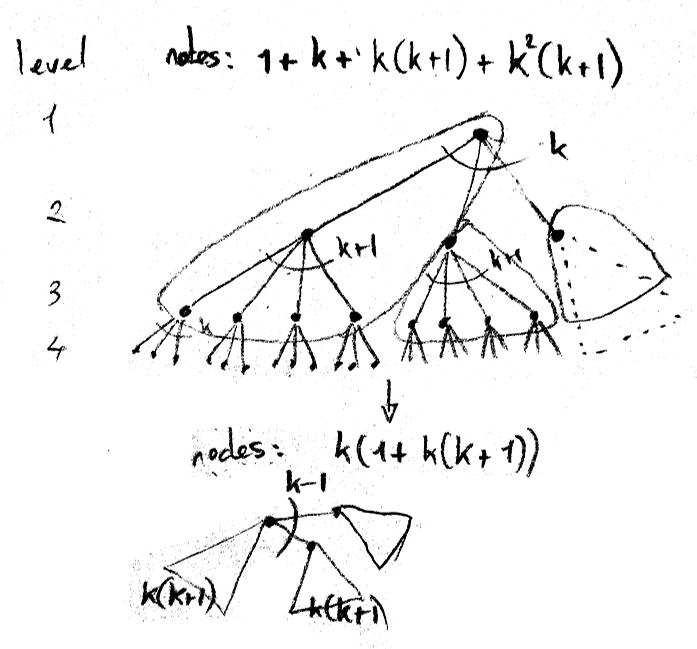 level notes: 1 + k + k(k+1) + k²(k+1)
1
k
2
k+1 k+1
3
k
4
nodes: k(1 + k(k+1))
k-1
k(k+1) k(k+1)